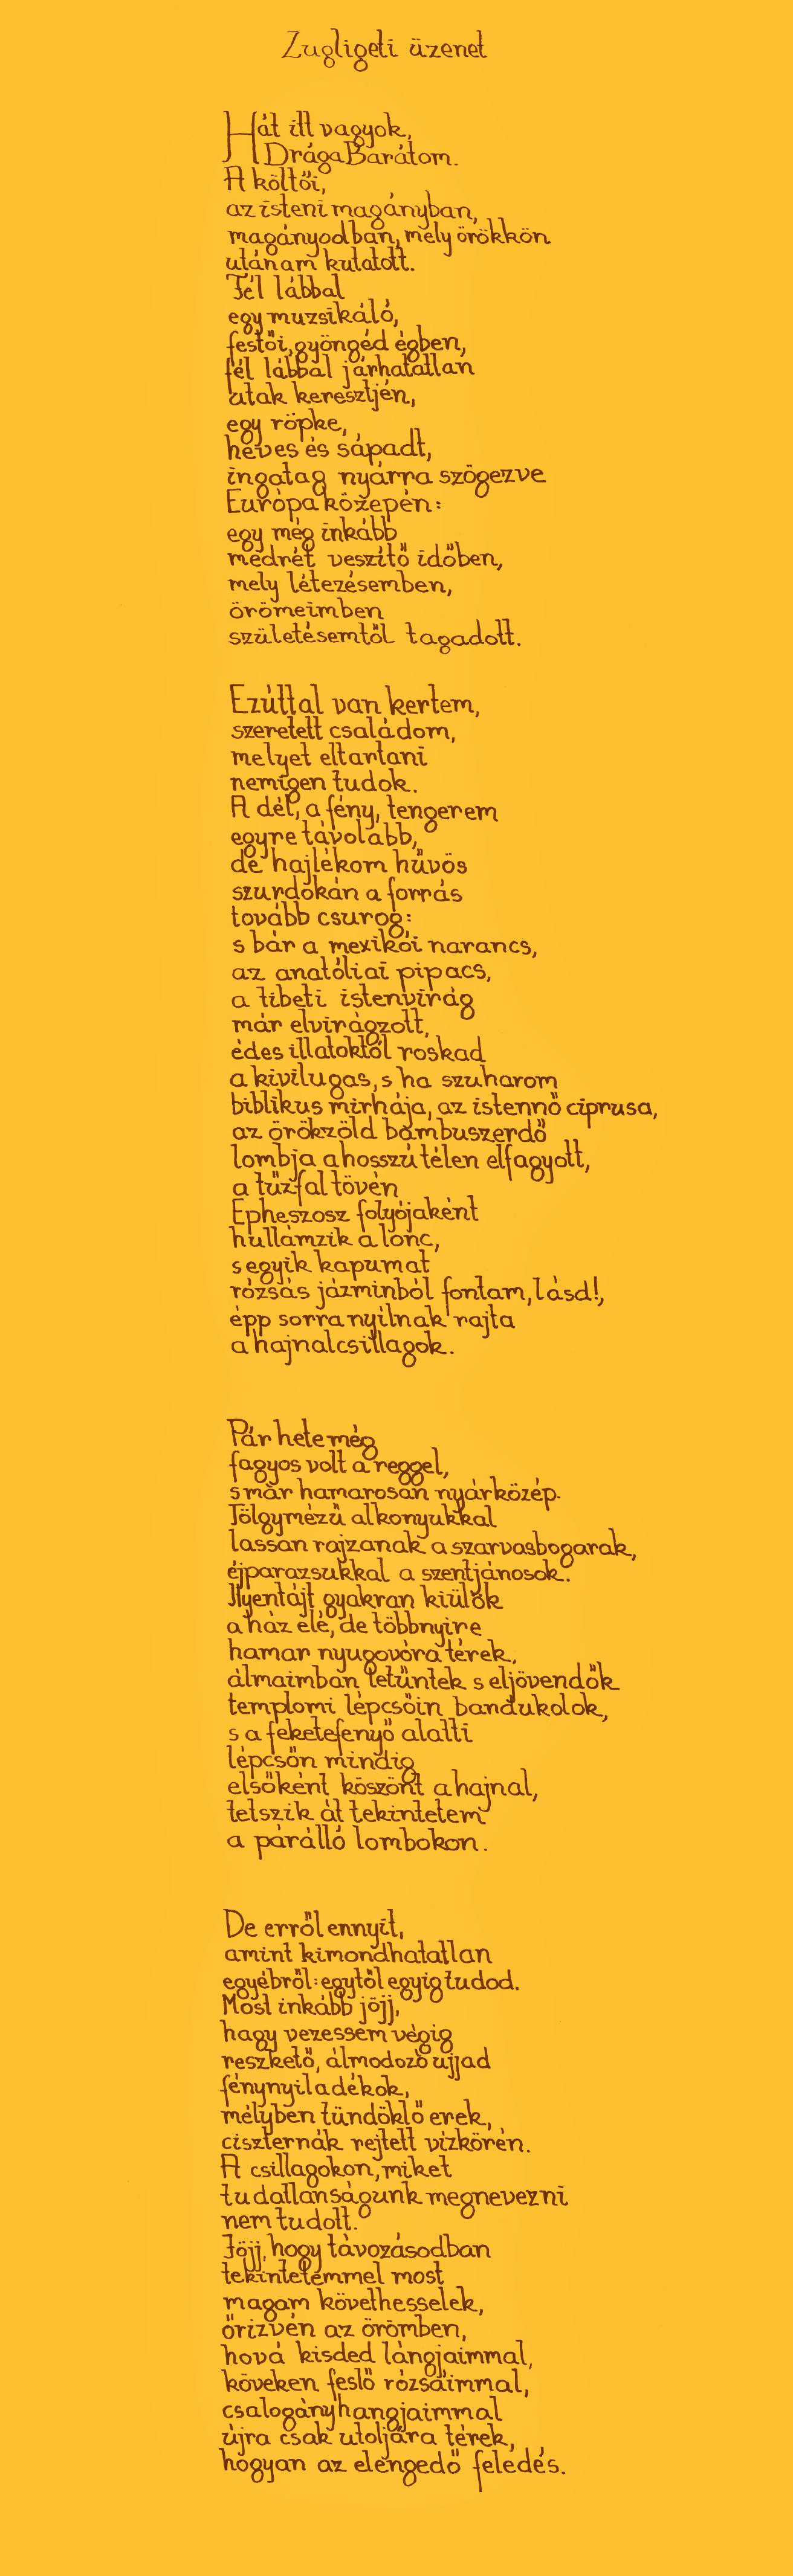 Zugligeti üzenet
Hát itt vagyok,
Drága Barátom.
A költői,
az isteni magányban,
magányodban, mely örökkön
utánam kutatott.
Fél lábbal
egy muzsikáló,
festői, gyöngéd égben,
fél lábbal járhatatlan
utak keresztjén,
egy röpke,
heves és sápadt,
ingatag nyárra szögezve
Európa közepén:
egy még inkább
medrét veszítő időben,
mely létezésemben,
örömeimben
születésemtől tagadott.
Ezúttal van kertem,
szeretett családom,
melyet eltartani
nemigen tudok.
A dél, a fény, tengerem
egyre távolabb,
de hajlékom hűvös
szurdokán a forrás
tovább csurog:
s bár a mexikói narancs,
az anatóliai pipacs,
a tibeti istenvirág
már elvirágzott,
édes illatoktól roskad
a kivilugas, s ha szuharom
biblikus mirhája, az istennő ciprusa,
az örökzöld bambuszerdő
lombja a hosszú télen elfagyott,
a tűzfal tövén
Epheszosz folyójaként
hullámzik a lonc,
s egyik kapumat
rózsás jázminból fontam, lásd!,
épp sorra nyílnak rajta
a hajnalcsillagok.
Pár hete még
fagyos volt a reggel,
s már hamarosan nyárközép.
Tölgymézű alkonyukkal
lassan rajzanak a szarvasbogarak,
éjparazsukkal a szentjánosok.
Ilyentájt gyakran kiülök
a ház elé, de többnyire
hamar nyugovóra térek,
álmaimban letűntek s eljövendők
templomi lépcsőin bandukolok,
s a feketefenyő alatti
lépcsőn mindig
elsőként köszönt a hajnal,
tetszik át tekintetem
a párálló lombokon.
De erről ennyit,
amint kimondhatatlan
egyébről: egytől egyig tudod.
Most inkább jöjj,
hagy vezessem végig
reszkető, álmodozó ujjad
fénynyiladékok,
mélyben tündöklő erek,
ciszternák rejtett vízkörén.
A csillagokon, miket
tudatlanságunk megnevezni
nem tudott.
Jöjj, hogy távozásodban
tekintetemmel most
magam követhesselek,
őrizvén az örömben,
hová kisded lángjaimmal,
köveken feslő rózsáimmal,
csalogányhangjaimmal
újra csak utoljára térek,
hogyan az elengedő feledés.